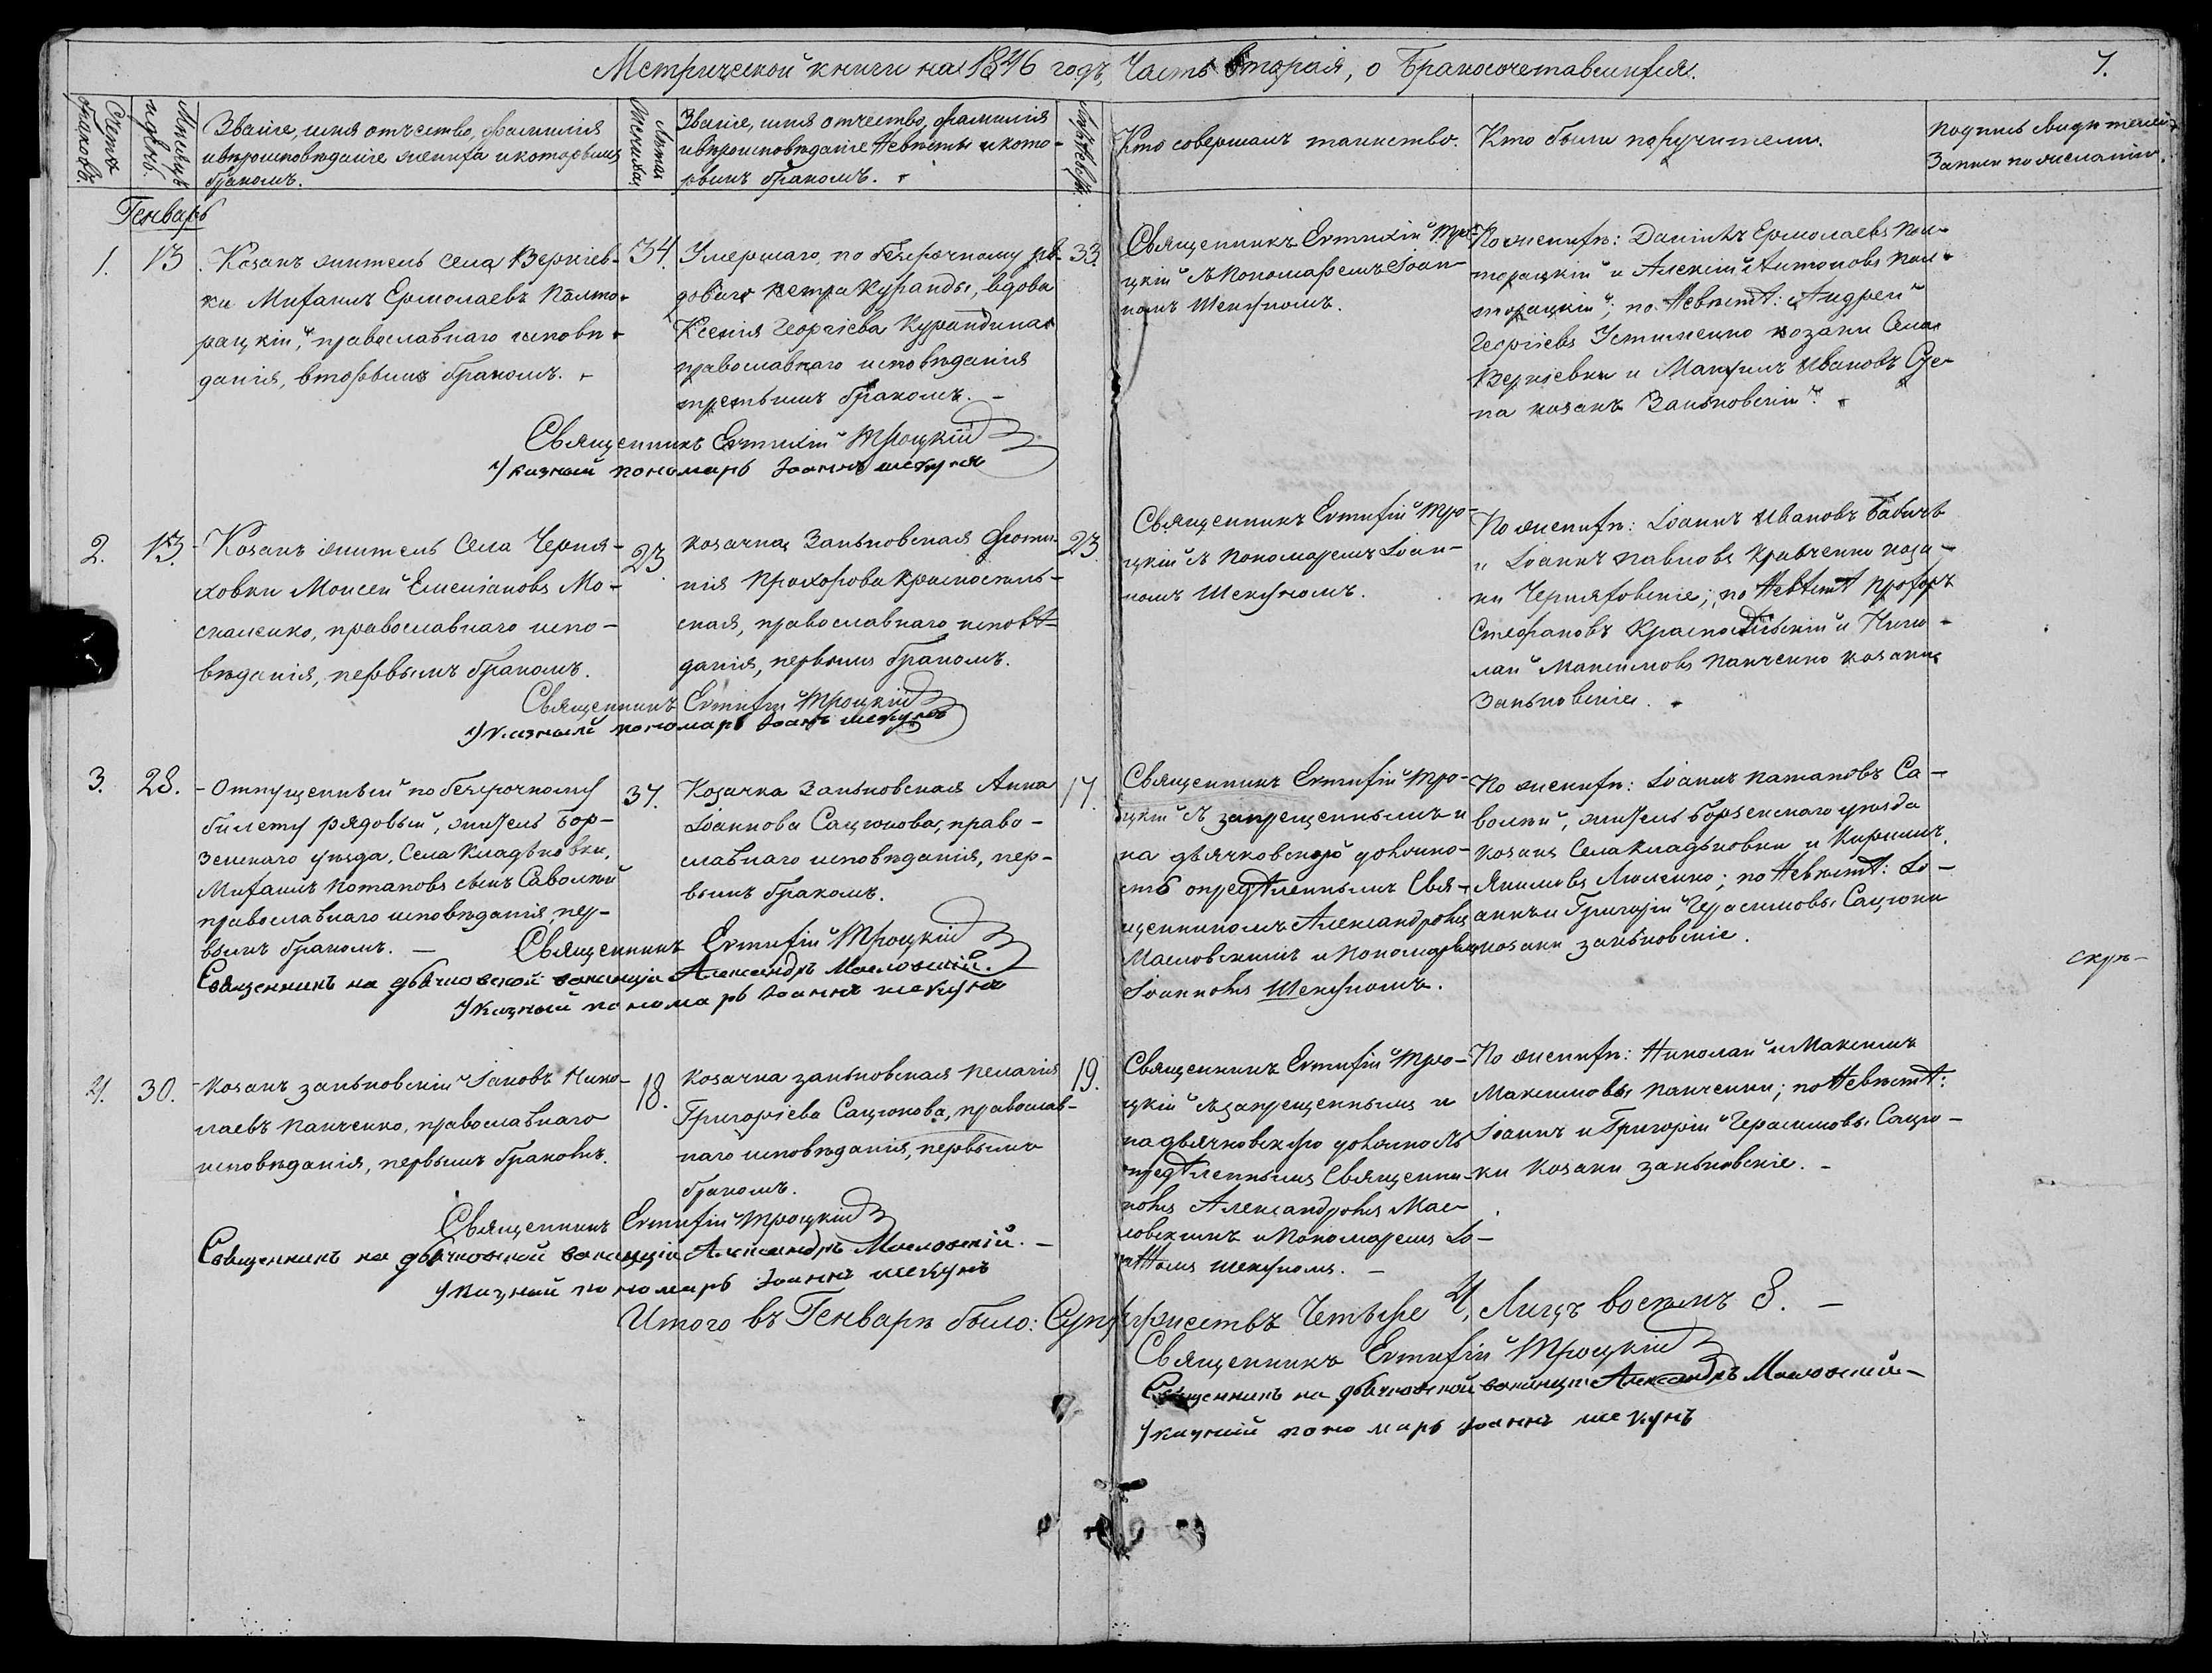 Метрической книги на 1846 годъ, Часть вторая, о Бракосочетавшихся.
7.
Счетъ браковъ.
Мѣсяцъ и день.
Званіе, имя отчество, фамилія
и вѣроисповѣданіе жениха и которымъ
бракомъ.
Лѣта жениха.
Званіе, имя отчество, фамилія
и вѣроисповѣданіе Невѣсты и кото-
рымъ бракомъ.
Кто совершалъ таинство.
Кто были поручители.
Подпись свидѣтелей
Записи по желанію.
Генварь
1.
13
Козакъ житель села Веркіев-
ки Михаилъ Ермолаевъ Палто-
рацкій, православнаго исповѣ-
данія, вторымъ бракомъ.
34.
Умершаго, по безсрочному ря-
доваго Петра Куранды, вдова
Ксенія Георгіева Курандина
православнаго исповѣданія
третьимъ бракомъ. -
33.
Священникъ Евтихій Тро-
цкій съ Пономаремъ Іоан-
номъ Шекуномъ.
По женихѣ: Даніилъ Ермолаевъ Пол-
торацкій и Алексій Антоновъ Пол-
торацкій; по Невѣстѣ: Андрей
Георгіевъ Устименко козаки Села
Веркіевки и Максимъ Ивановъ
козакъ Заньковскій.
Священникъ Евтихій Троцкій
Указный пономарь Іоаннъ Шекунъ
2.
13.
Козакъ житель Села Черня-
ховки Моисей Емеліановъ Мо-
скаленко, православнаго испо-
вѣданія, первымъ бракомъ.
23.
Козачка Заньковская Фоти-
нія Прохорова Красносель-
ская, православнаго исповѣ-
данія, первымъ бракомъ.
23.
Священникъ Евтихій Тро-
цкій съ Пономаремъ Іоан-
номъ Шекуномъ.
По женихѣ: Іоаннъ Ивановъ Бабичъ
и Іоаннъ Павловъ Кравченко коза-
ки Черняховскіе; по Невѣстѣ Прохоръ
Стефановъ Красносельскій и Нико-
лай Максимовъ Панченко козаки
Заньковскіе.
Священникъ Евтихій Троцкій
Указный пономарь Іоаннъ Шекунъ
3.
28.
Отпущенный по безсрочному
билету рядовый, житель Бор-
зенскаго уѣзда, Села Кладьковки,
Михаилъ Потаповъ сынъ Саволкій
православнаго исповѣданія, пер-
вымъ бракомъ. -
37.
Козачка Заньковская Анна
Іоаннова Сацюкова, право-
славнаго исповѣданія, пер-
вымъ бракомъ.
17.
Священникъ Евтихій Тро-
цкій съ запрещеннымъ и
на дьячковскую должно-
сть опредѣленнымъ Свя-
щенникомъ Александромъ
Масловскимъ и Пономаремъ
Іоанномъ Шекуномъ.
По женихѣ: Іоаннъ Потаповъ Са-
волкій, житель Борзенскаго уѣзда
козакъ Села Кладьковки и Кириллъ
Якимовъ Люленко; по Невѣстѣ: Іо-
аннъ и Григорій Герасимовы Сацюки
козаки заньковскіе.
скрѣ-
Священникъ Евтихій Троцкій
Священникъ на дьячковской вакансіи Александръ Масловскій.
Указный пономарь Іоаннъ Шекунъ
4.
30.
Козакъ заньковскій Іаковъ Нико-
лаевъ Панченко, православнаго
исповѣданія, первымъ бракомъ.
18.
Козачка заньковская Пелагія
Григоріева Сацюкова, православ-
наго исповѣданія, первымъ
бракомъ.
19.
Священникъ Евтихій Тро-
цкій съ запрещеннымъ и
на дьячковскую должность
опредѣленнымъ Священни-
комъ Александромъ Мас-
ловскимъ и Пономаремъ Іо-
анномъ Шекуномъ. -
По женихѣ: Николай и Максимъ
Максимовы Панченки; по Невѣстѣ:
Іоаннъ и Григорій Герасимовы Сацю-
ки Козаки заньковскіе. -
Священникъ Евтихій Троцкій
Священникъ на дьячковской вакансіи Александръ Масловскій. -
Указный пономарь Іоаннъ Шекунъ
Итого въ Генварѣ было: Супружествъ Четыре 4, Лицъ восемь 8. -
Священникъ Евтихій Троцкій
Священникъ на дьячковской вакансіи Александръ Масловскій -
Указный пономарь Іоаннъ Шекунъ